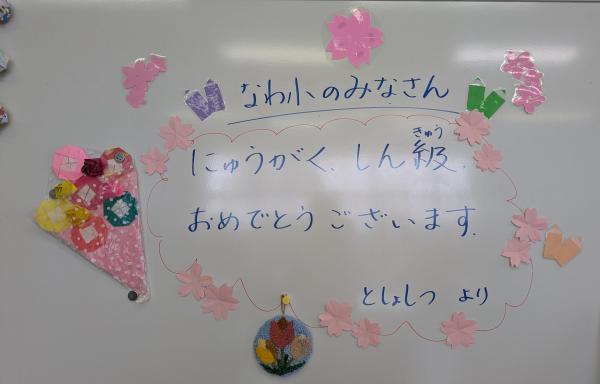 なわ小のみなさん
にゅうがく、しん級、
きゅう
おめでとうございます。
としょしつ より